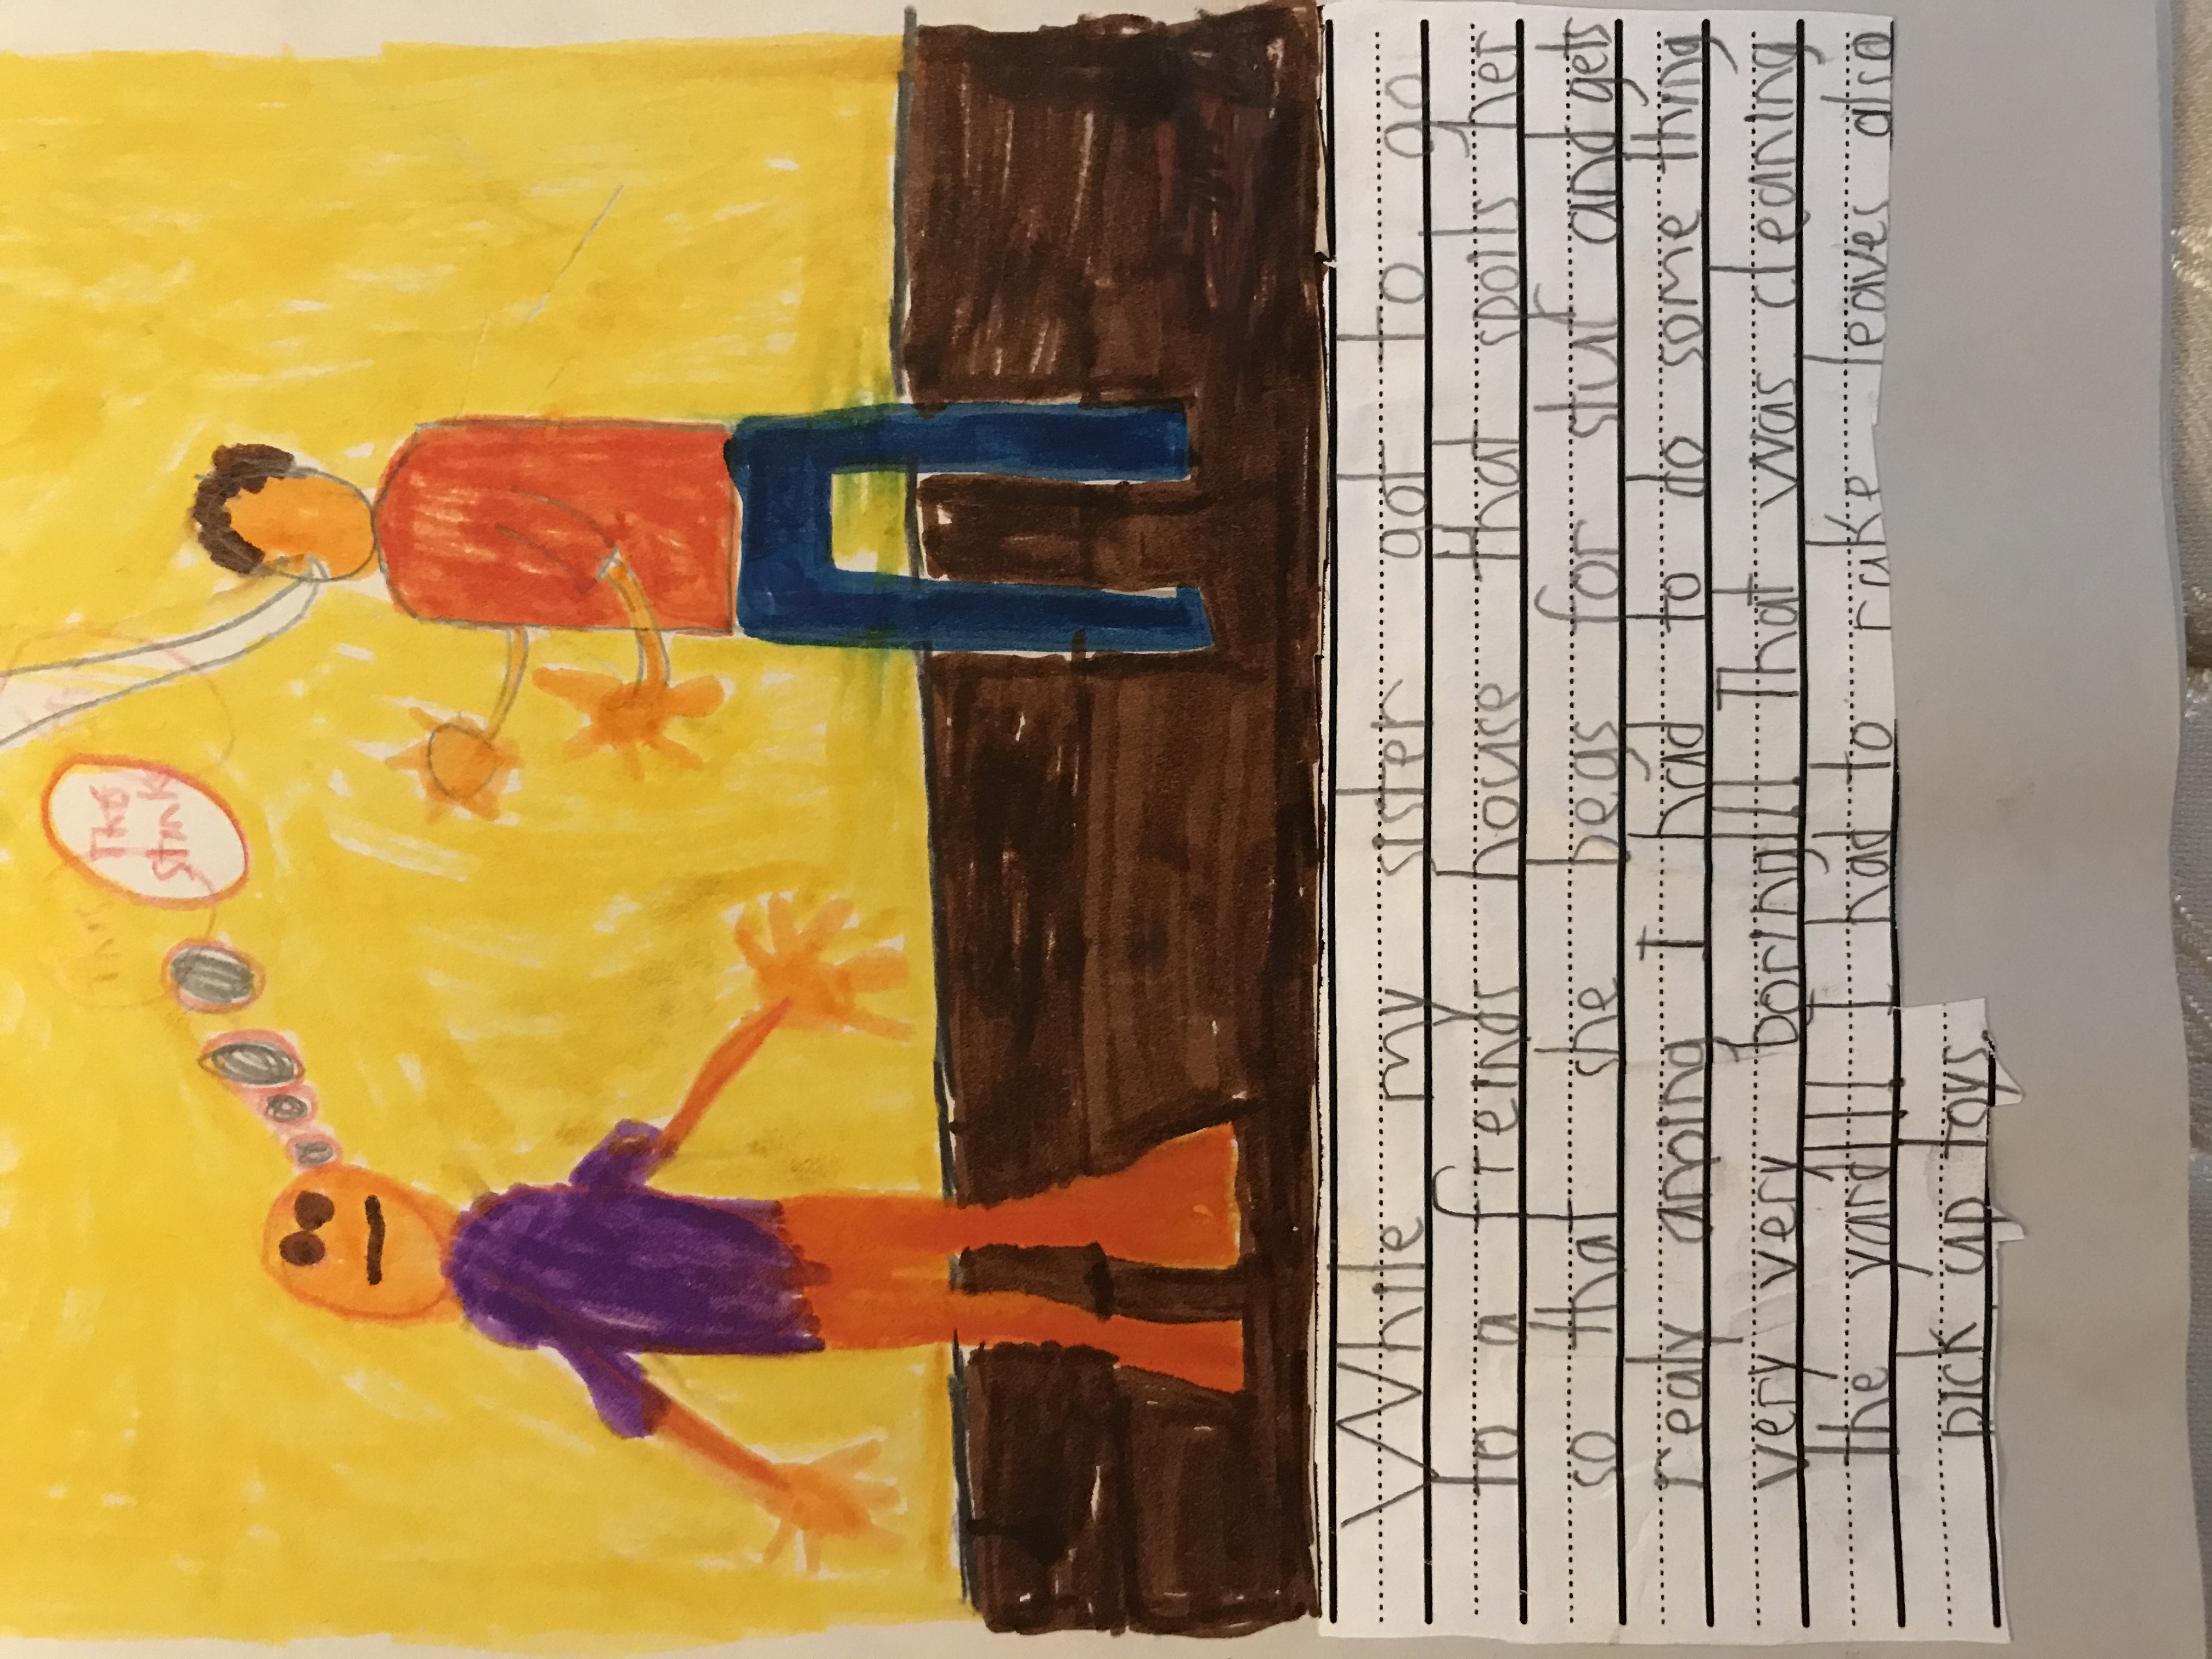 This
stink
While my sister got to go
to a freinds house that spoils her
so that she begs for stuf and gets
realy anoing I had to do some thing
very very boring!!! That was cleaning
the yard!!! I had to rake leaves also
pick up toys.